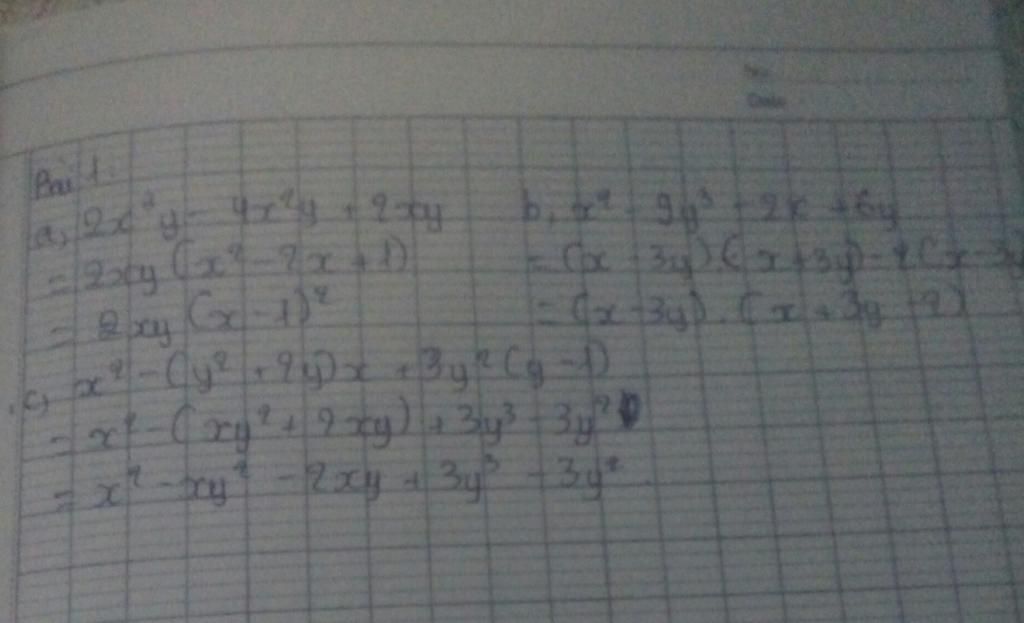 Bài 1:
a, 2x³y - 4x²y + 2xy
= 2xy (x² - 2x + 1)
= 2xy (x - 1)²
b, x² - 9y³ - 2x + 6y
= (x - 3y).(x + 3y) - 2(x - 3y
= (x - 3y).(x + 3y - 2)
c, x² - (y² + 2y)x + 3y²(y - 1)
= x² - (xy² + 2xy) + 3y³ - 3y²
= x² - xy² - 2xy + 3y³ - 3y²